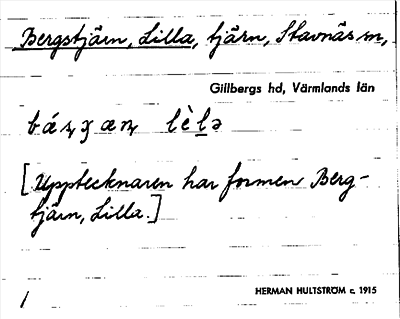 Bergstjärn, Lilla, tjärn, Stavnäs sn,
Gillbergs hd, Värmlands län
lèlə
[Upptecknaren har formen Berg-
tjärn, Lilla.]
HERMAN HULTSTRÖM c. 1915